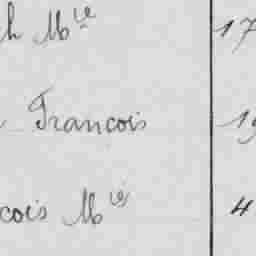 h Mie 17
François 19
çois Mie 4